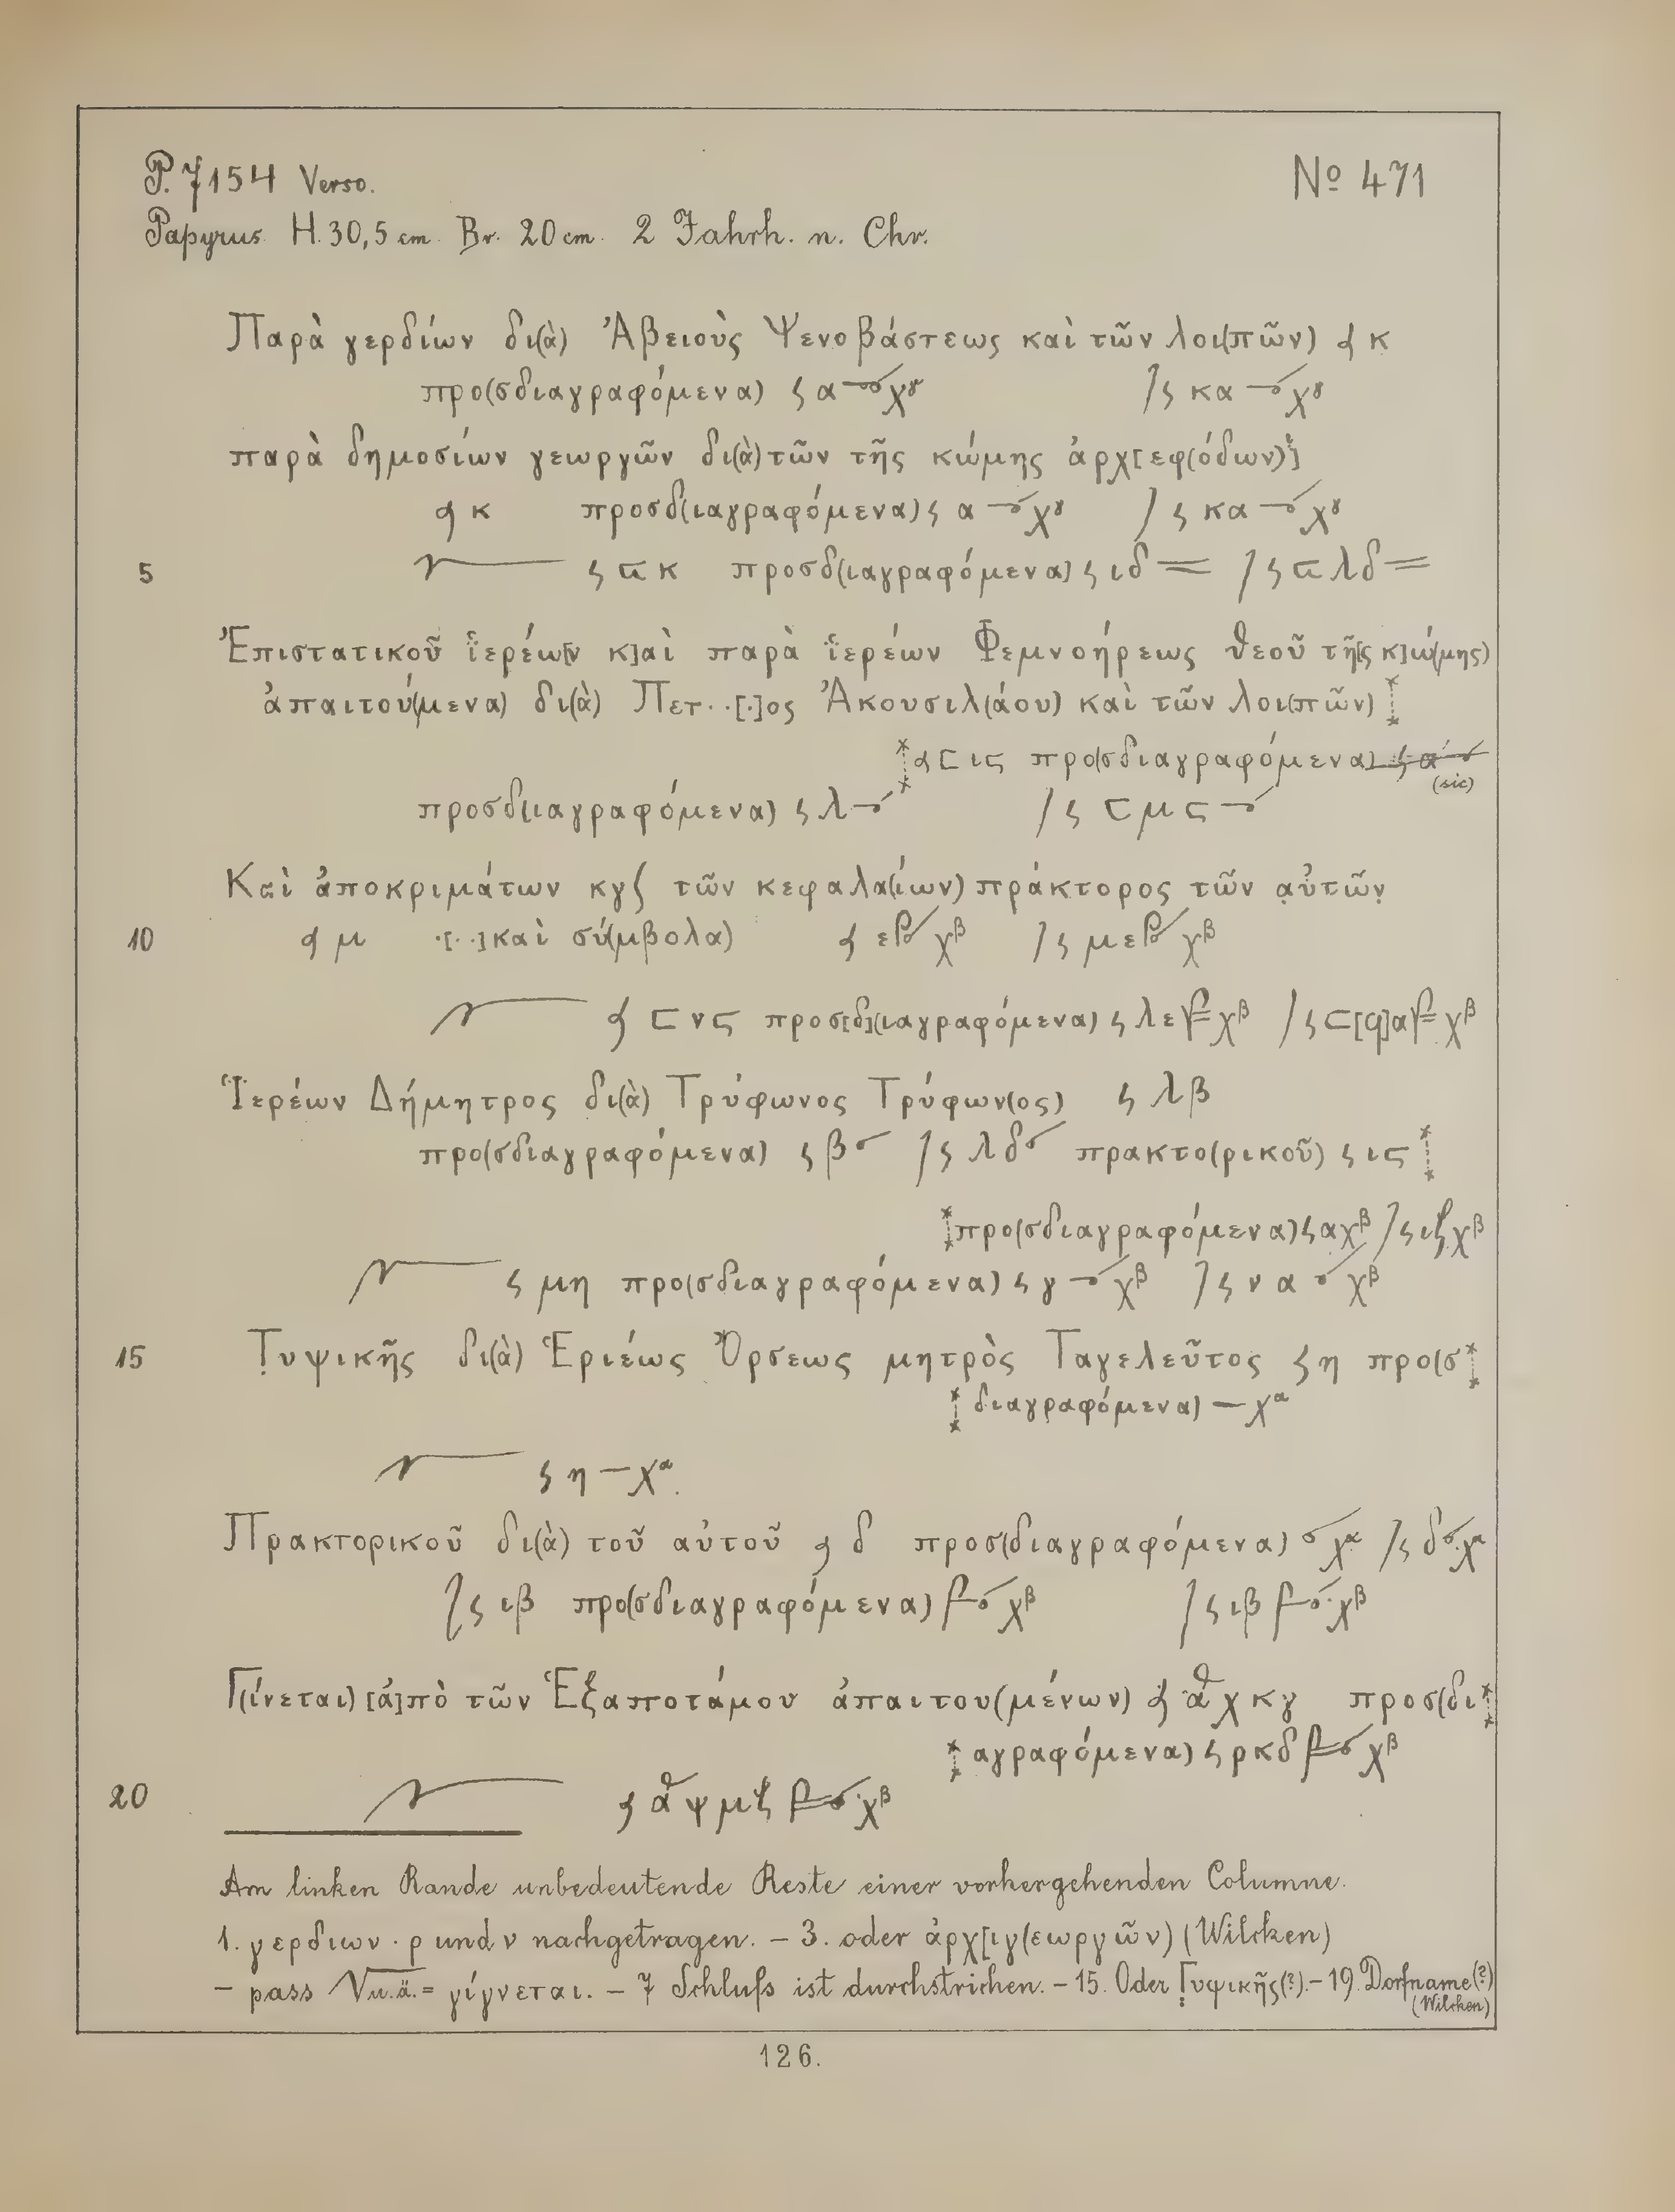 P. 7154 Verso. Nº 471
Papyrus H. 30,5 cm. Br. 20 cm. 2 Jahrh. n. Chr.
Παρὰ γερδίων δι(ὰ) Ἀβειοὺς Ψενοβάστεως καὶ τῶν λοι(πῶν) ϛ κ
προ(σδιαγραφόμενα) ϛ α χγ / ϛ κα χγ
παρὰ δημοσίων γεωργῶν δι(ὰ) τῶν τῆς κώμης ἀρχ[εφ(όδων)]
ϛ κ προσδ(ιαγραφόμενα) ϛ α χγ / ϛ κα χγ
5 ϛ κ προσδ(ιαγραφόμενα) ϛ ιδ = / ϛ λδ =
Ἐπιστατικοῦ ἱερέω[ν κ]αὶ παρὰ ἱερέων Φεμνοήρεως θεοῦ τῆ[ς κ]ώ(μης)
ἀπαιτού(μενα) δι(ὰ) Πετ..[.]ος Ἀκουσιλ(άου) καὶ τῶν λοι(πῶν)
ις προ(σδιαγραφόμενα) ϛ α
(sic)
προσδ(ιαγραφόμενα) ϛ λ / ϛ μϛ
Καὶ ἀποκριμάτων κγ τῶν κεφαλα(ίων) πράκτορος τῶν α̣ὐτῶν̣
10 ϛ μ .[..] καὶ σύ(μβολα) ϛ ε χβ / ϛ με χβ
ϛ νϛ προσ[δ](ιαγραφόμενα) ϛ λε χβ / ϛ [ϙ]α χβ
Ἱερέων Δήμητρος δι(ὰ) Τρύφωνος Τρύφων(ος) ϛ λβ
προ(σδιαγραφόμενα) ϛ β / ϛ λδ πρακτο(ρικοῦ) ϛ ιϛ
προ(σδιαγραφόμενα) ϛ α χβ / ϛ ιζ χβ
ϛ μη προ(σδιαγραφόμενα) ϛ γ χβ / ϛ να χβ
15 Τ̣υψικῆς δι(ὰ) Ἑριέως Ὄρσεως μητρὸς Ταγελεῦτος ϛ η προ(σ
διαγραφόμενα) — χα
ϛ η — χα.
Πρακτορικοῦ δι(ὰ) τοῦ αὐτοῦ ϛ δ προσ(διαγραφόμενα) χα / ϛ δ χα
/ ϛ ιβ προ(σδιαγραφόμενα) χβ / ϛ ιβ χβ
Γ(ίνεται) [ἀ]πὸ τῶν Ἑξαποτάμου ἀπαιτου(μένων) ϛ α χκγ προσ(δι
αγραφόμενα) ϛ ρκδ χβ
20 ϛ α ψμζ χβ
Am linken Rande unbedeutende Reste einer vorhergehenden Columne.
1. γερδιων · ρ und ν nachgetragen. – 3. oder ἀρχ[ιγ(εωργῶν) (Wilcken)
– pass u.ä. = γίγνεται. – 7 Schluſs ist durchstrichen. – 15. Oder Γ̣υψικῆς(?). – 19. Dorfname(?)
(Wilcken)
126.